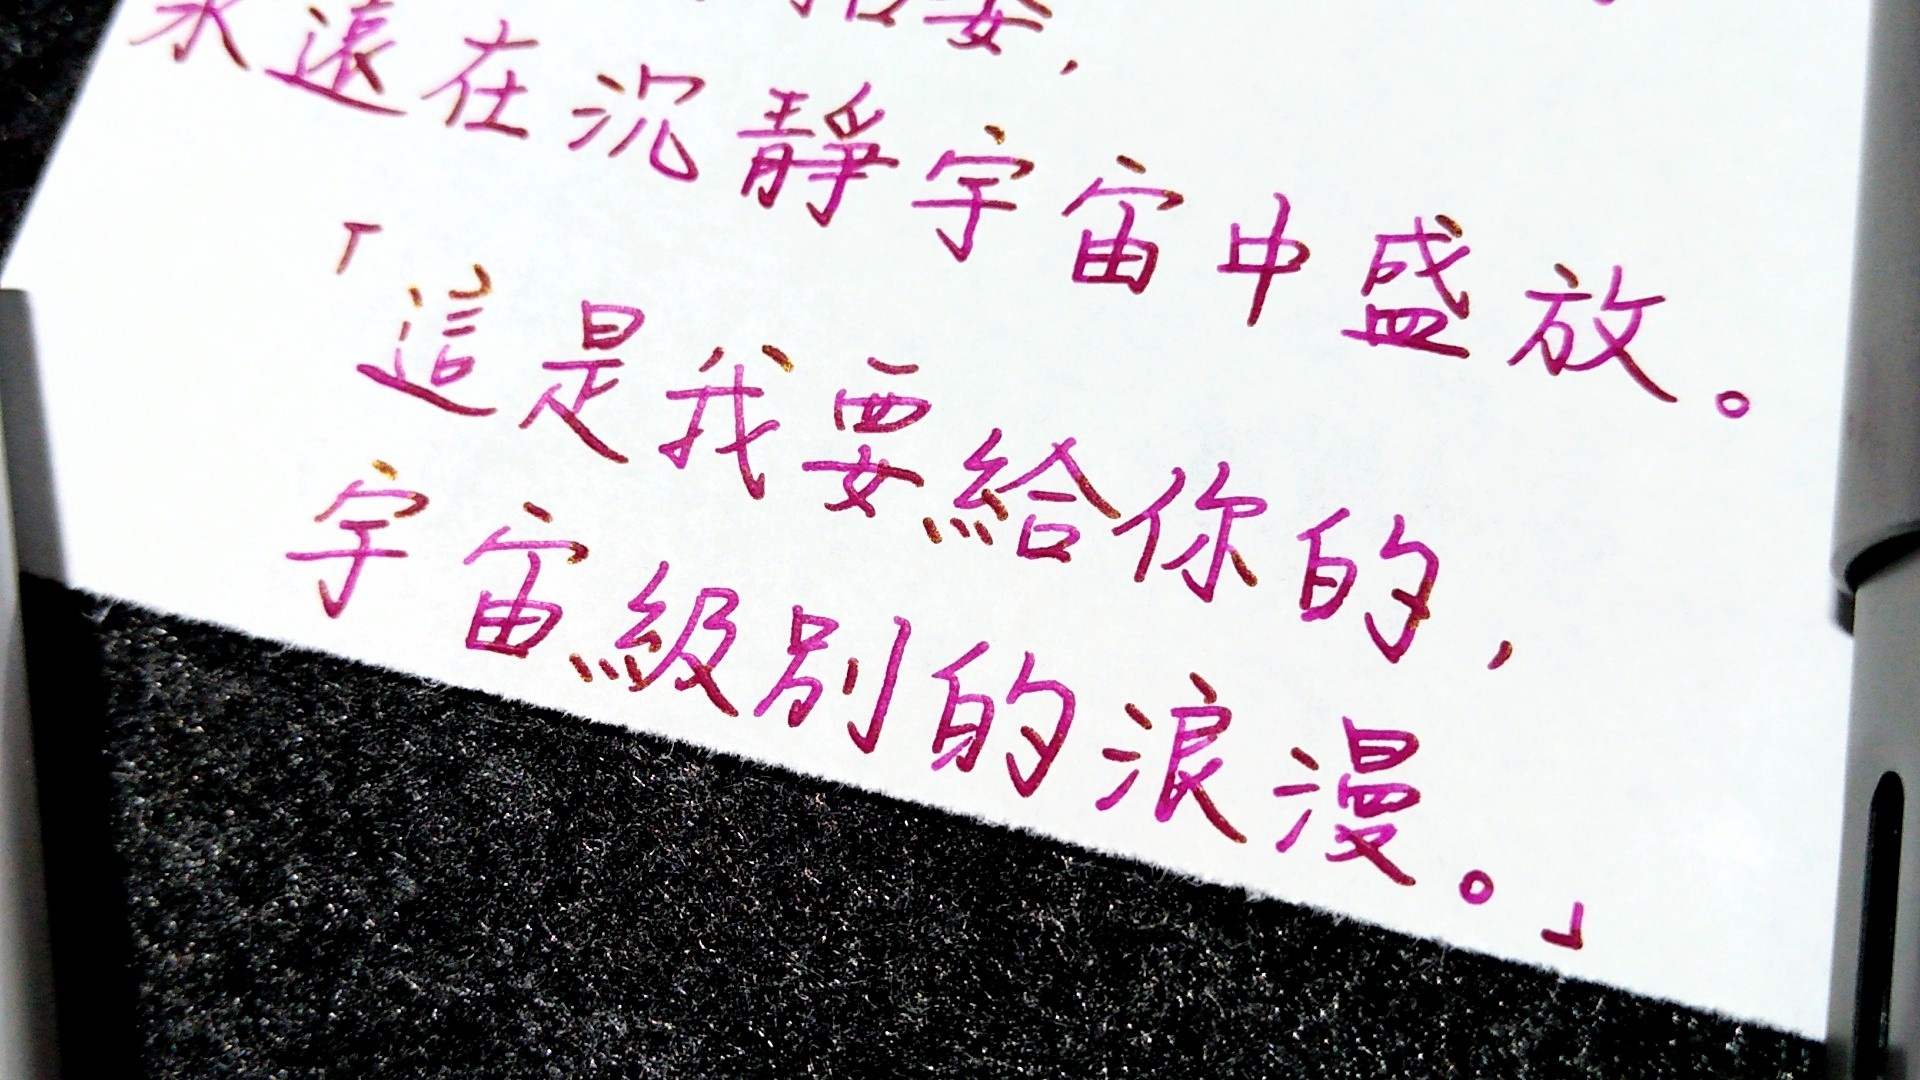 永遠在沉靜宇宙中盛放。
「這是我要給你的，
宇宙級別的浪漫。」